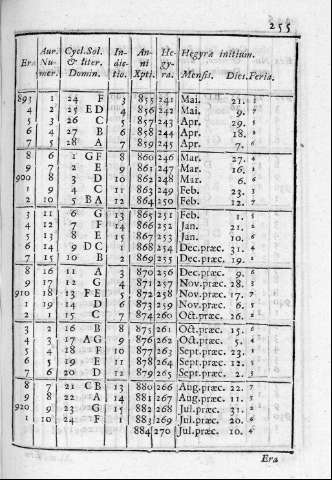 255
Era Aur. Numer. Cycl. Sol. & liter. Domin. Indictio. Anni Xpti. Hegyra. Hegyræ initium. Mensis. Dies. Feria.
893 1 24 F 3 855 241 Mai. 21.
4 2 25 ED 4 856 242 Mai. 9.
5 3 26 C 5 857 243 Apr. 29.
6 4 27 B 6 858 244 Apr. 18.
7 5 28 A 7 859 245 Apr. 7. 6
8 6 1 GF 8 860 246 Mar. 27. 4
9 7 2 E 9 861 247 Mar. 16.
900 8 3 D 10 862 248 Mar. 6. 6
1 9 4 C 11 863 249 Feb. 23. 3
2 10 5 BA 12 864 250 Feb. 12. 7
3 11 6 G 13 865 251 Feb. 1. 5
4 12 7 F 14 866 252 Jan. 21. 2
5 13 8 E 15 867 253 Jan. 10. 6
6 14 9 DC 1 868 254 Dec.præc. 31. 4
7 15 10 B 2 869 255 Dec.præc. 19.
8 16 11 A 3 870 256 Dec.præc. 9. 6
9 17 12 G 4 871 257 Nov.præc. 28. 3
910 18 13 FE 5 872 258 Nov.præc. 17. 7
1 19 14 D 6 873 259 Nov.præc. 6. 5
2 1 15 C 7 874 260 Oct.præc. 26.
3 2 16 B 8 875 261 Oct.præc. 15. 6
4 3 17 AG 9 876 262 Oct.præc. 5. 4
5 4 18 F 10 877 263 Sept.præc. 23. 1
6 5 19 E 11 878 264 Sept.præc. 12. 5
7 6 20 D 12 879 265 Sept.præc. 2. 3
8 7 21 CB 13 880 266 Aug.præc. 22. 7
9 8 22 A 14 881 267 Aug.præc. 11. 5
920 9 23 G 15 882 268 Jul.præc. 31. 2
1 10 24 F 1 883 269 Jul.præc. 20. 6
884 270 Jul.præc. 10. 4
Era